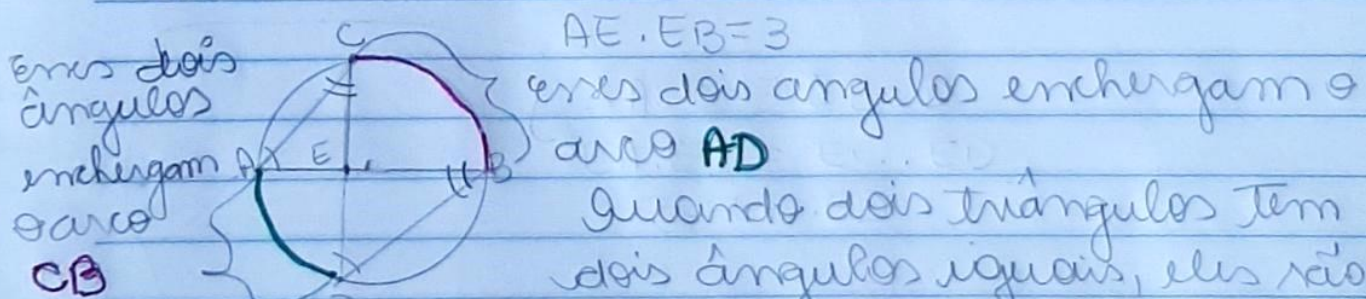 AE.EB=3
Esses dois
ângulos
enchergam
o arco
CB
C
A
E
B
esses dois angulos enchergam o
arco AD
Quando dois triângulos Tem
dois ângulos iguais, eles são